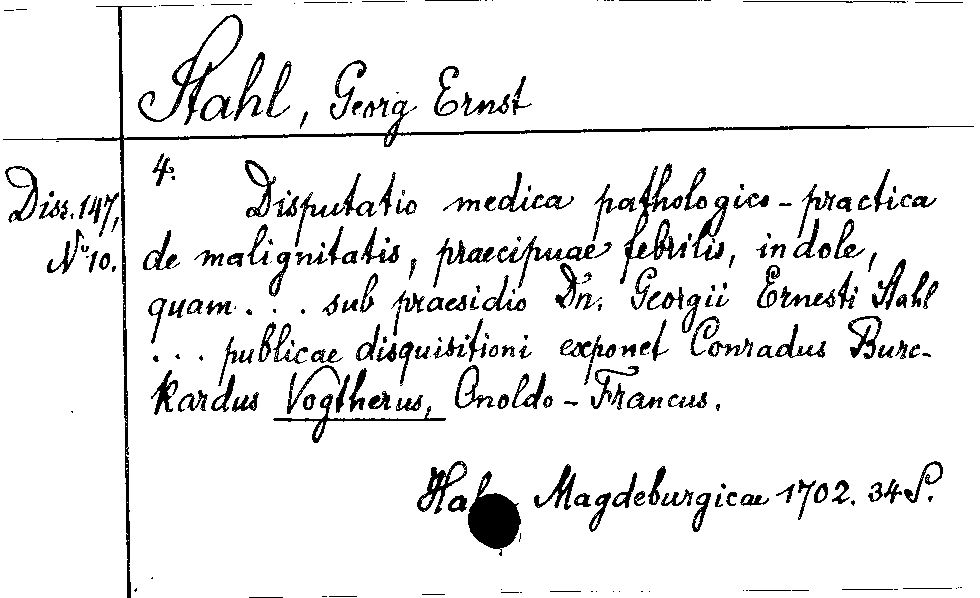 Stahl, Georg Ernst
4.
Diss. 147,
No 10.
Disputatio medica pathologico-practica
de malignitatis, praecipuae febrilis, indole,
quam . . . sub praesidio Dn. Georgii Ernesti Stahl
. . . publicae disquisitioni exponet Conradus Burc-
kardus Vogtherus, Onoldo-Francus.
Magdeburgicae 1702. 34 S.